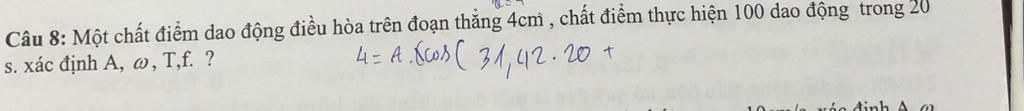 Câu 8: Một chất điểm dao động điều hòa trên đoạn thẳng 4cm , chất điểm thực hiện 100 dao động trong 20
s. xác định A, ω, T,f. ?
4 = A. cos ( 31,42 . 20 +
xác định A, ω